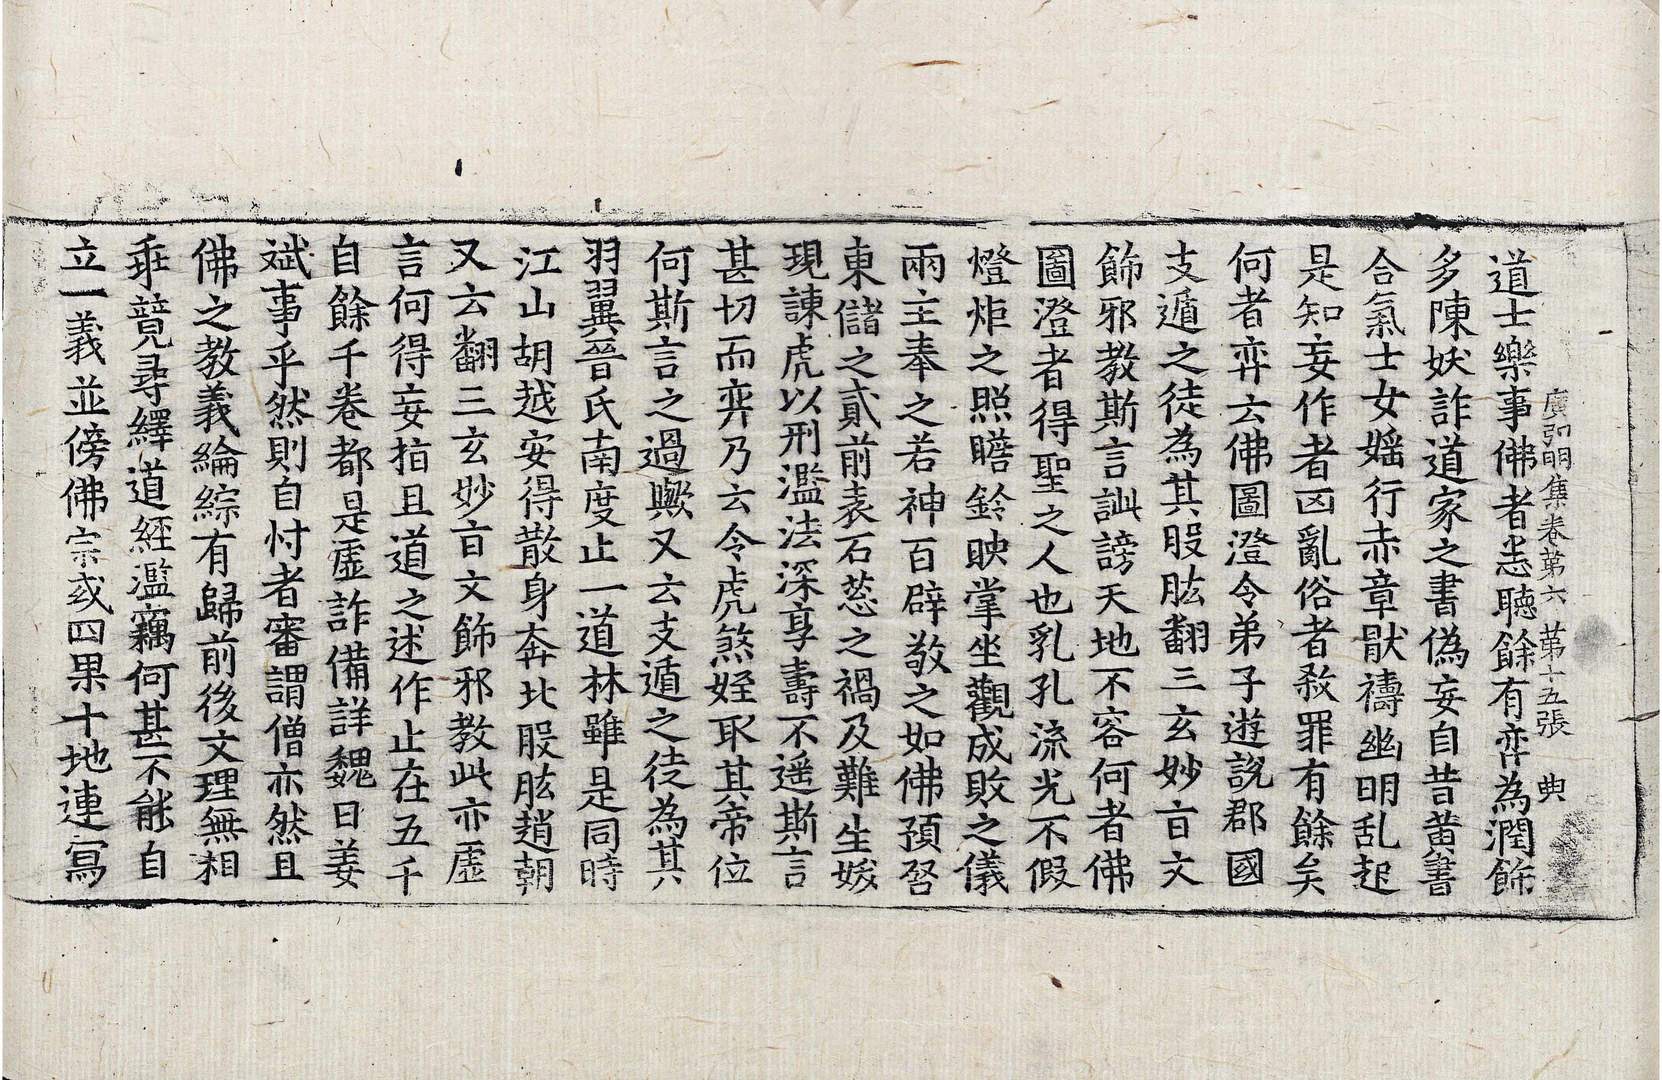 廣弘明集卷第六 苐十五張 典
道士樂事佛者恚聴餘有弈為潤餝
多陳妖詐道家之書偽妄自昔黄書
合氣士女婬行赤章猒禱幽明乱起
是知妄作者凶亂俗者敎罪有餘矣
何者弈云佛圖澄令弟子遊說郡國
支遁之徒為其股肱翻三玄妙㫖文
飾邪教斯言訕謗天地不容何者佛
圖澄者得聖之人也乳孔流光不假
燈炬之照瞻鈴映掌坐觀成敗之儀
兩主奉之若神百辟敬之如佛預咎
東儲之貳前表石葱之禍及難生媛
現諫虎以刑濫法深享壽不遥斯言
甚切而弈乃云令虎煞姪取其帝位
何斯言之過歟又云支遁之徒為其
羽翼晉氏南度止一道林雖是同時
江山胡越安得散身奔北股肱趙朝
又云翻三玄妙㫖文飾邪教此亦虛
言何得妄指且道之述作止在五千
自餘千卷都是虛詐備詳魏日姜
斌事乎然則自忖者審謂僧亦然且
佛之教義綸綜有歸前後文理無相
乖競尋繹道經濫竊何甚不能自
立一義並傍佛宗或四果十地連寫